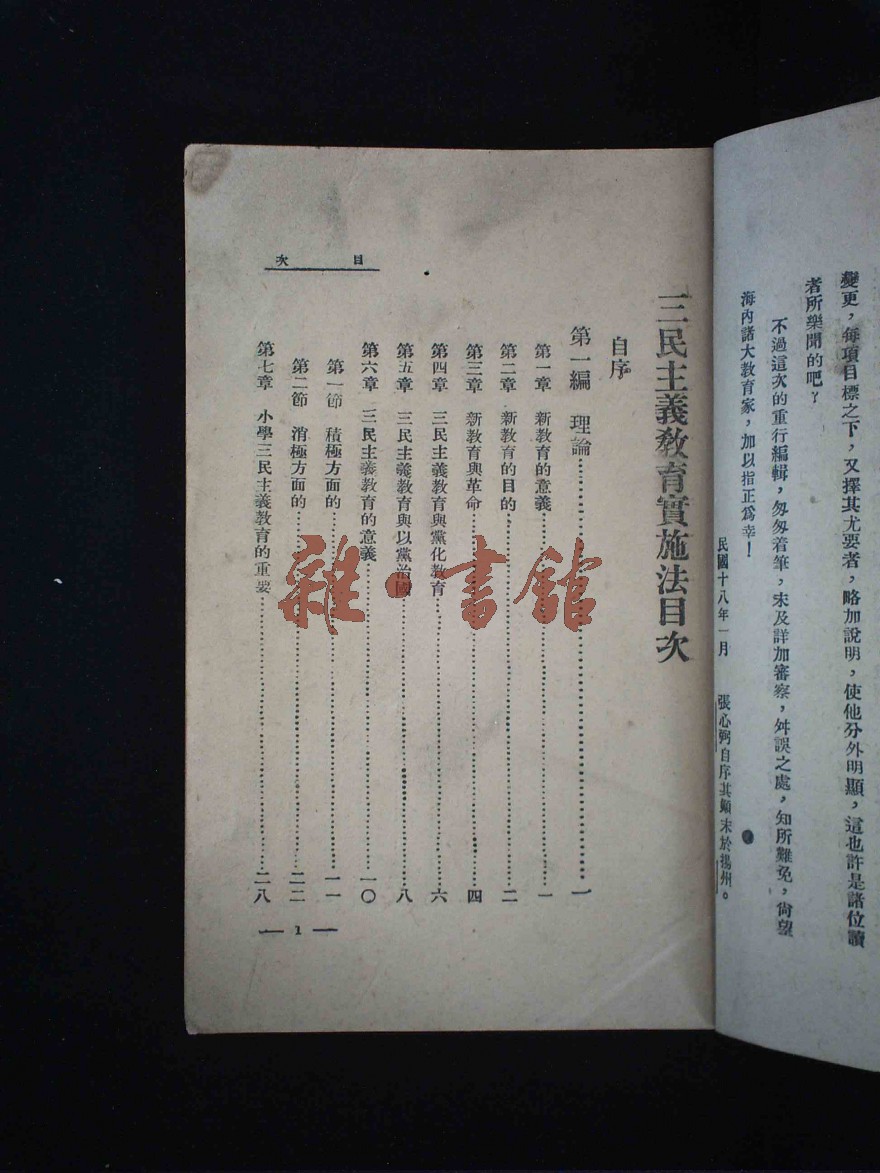 變更，每項目標之下，又擇其尤要者，略加說明，使他分外明顯，這也許是諸位讀
者所樂聞的吧？
不過這次的重行編輯，匆匆着筆，未及詳加審察，舛誤之處，知所難免，尙望
海內諸大教育家，加以指正爲幸！
民國十八年一月　張心弼自序其顚末於揚州。
三民主義教育實施法目次
自序
第一編　理論……一
第一章　新教育的意義……一
第二章　新教育的目的……二
第三章　新教育與革命……四
第四章　三民主義教育與黨化教育……六
第五章　三民主義教育與以黨治國……八
第六章　三民主義教育的意義……一〇
第一節　積極方面的……一一
第二節　消極方面的……二二
第七章　小學三民主義教育的重要……二八
目次
1
雜·書館